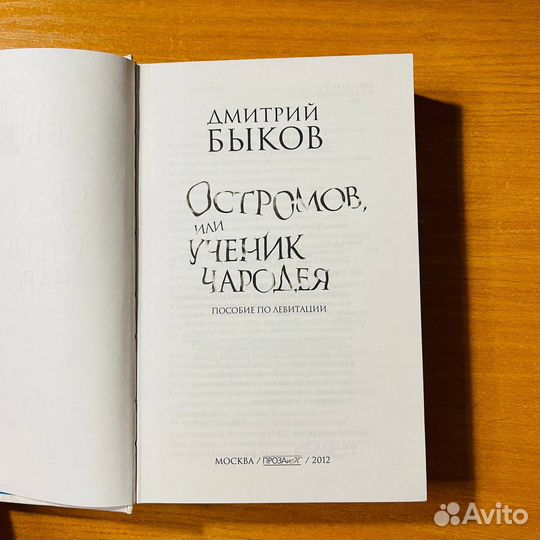 ДМИТРИЙ
БЫКОВ
ОСТРОМОВ,
ИЛИ
УЧЕНИК
ЧАРОДЕЯ
ПОСОБИЕ ПО ЛЕВИТАЦИИ
МОСКВА / ПРОЗАиК / 2012
Avito